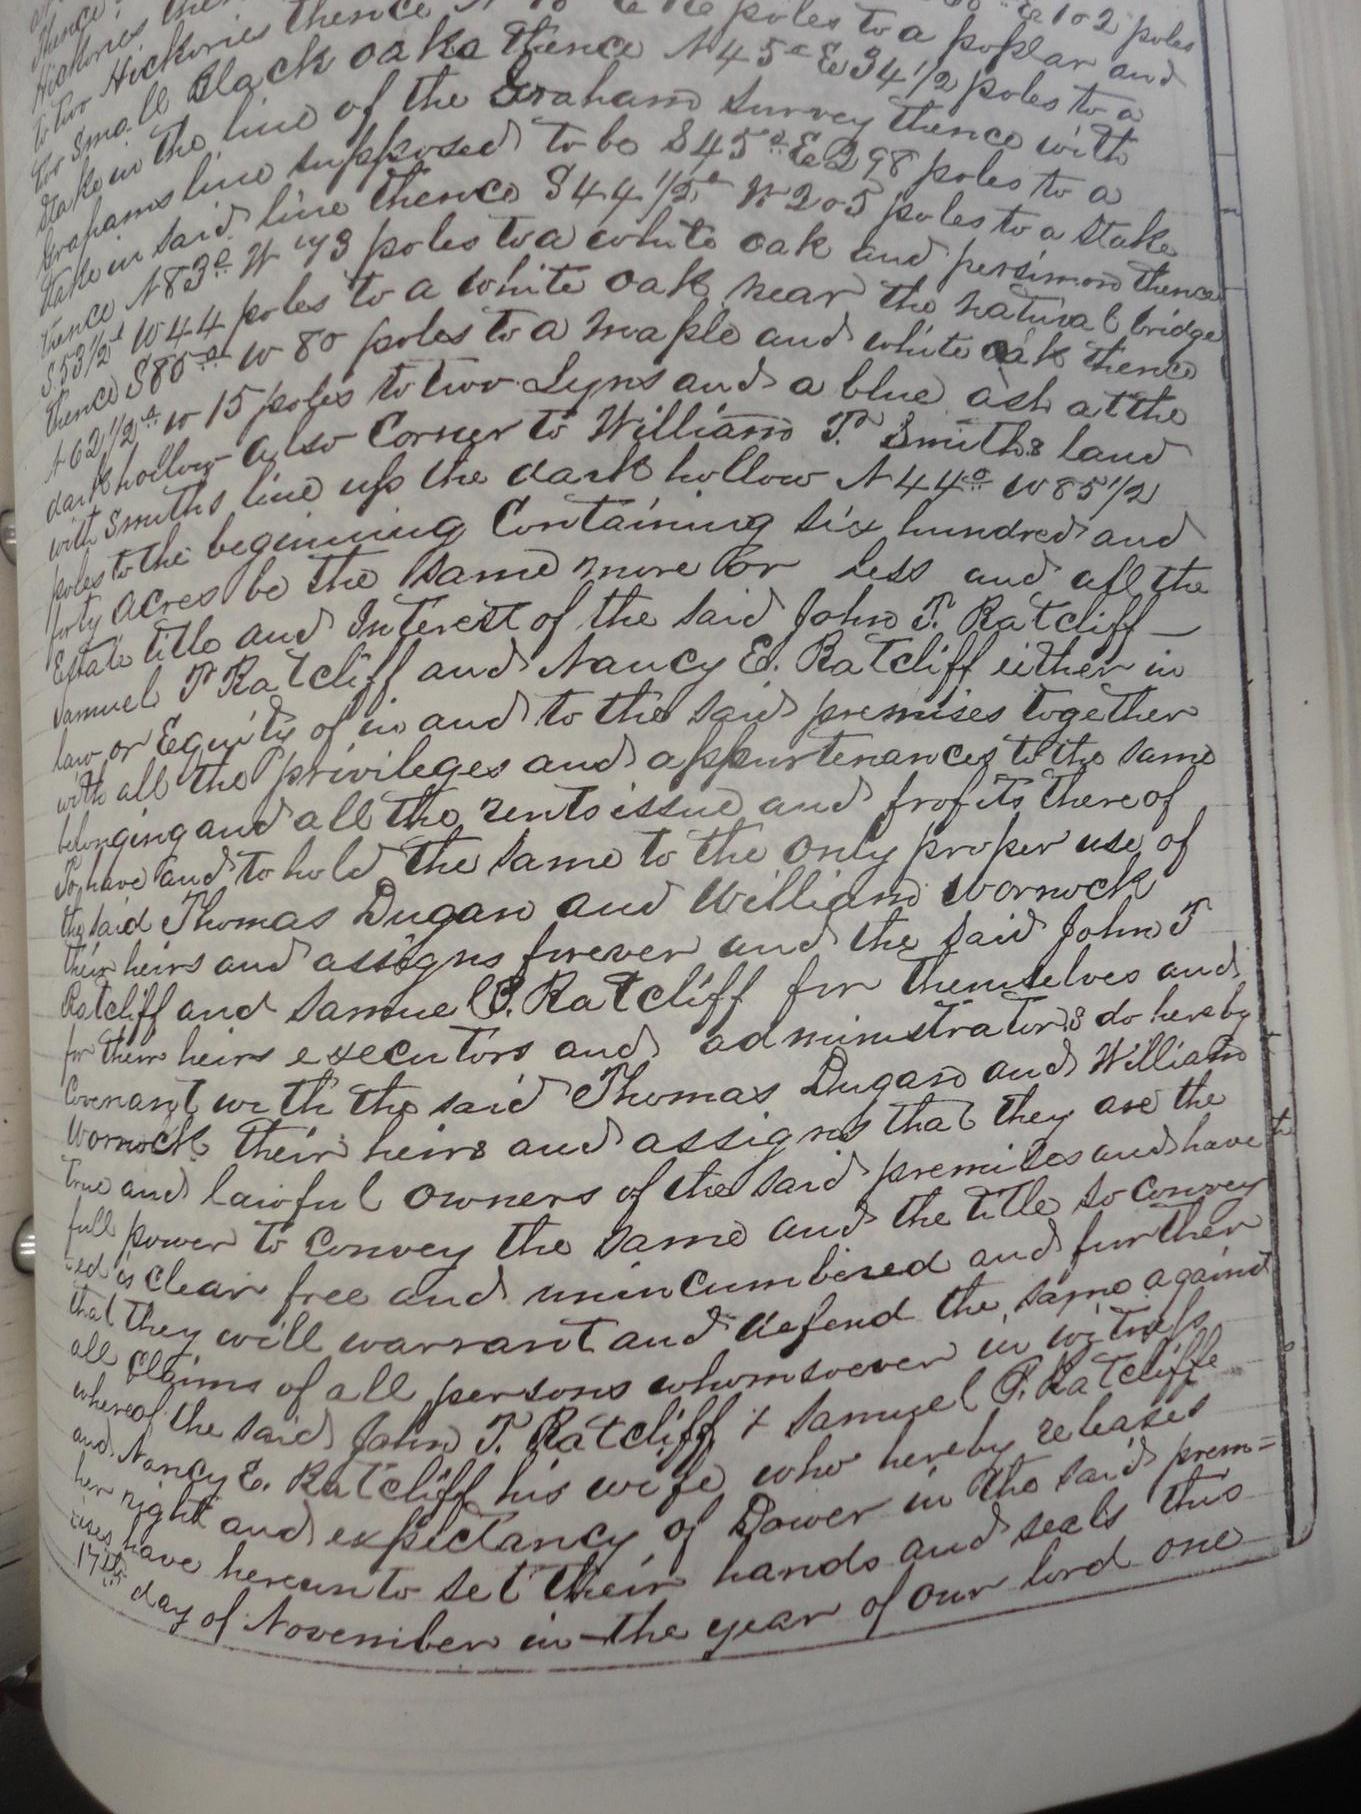 thence
Hickories thence & 102 poles
to two Hickories thence N poles to a poplar and
two small Black oaks thence N45° E 34 1/2 poles to a
stake in the line of the Graham survey thence with
Grahams line supposed to be S45° E 298 poles to a
stake in said line thence S44 1/2° W 205 poles to a stake
thence N83° W 43 poles to a white oak and persimon thence
S53 1/2° W 44 poles to a white oak near the natural bridge
thence S85° W 80 poles to a maple and white oak thence
N62 1/2° W 15 poles to two Lyns and a blue ash at the
dark hollow also Corner to William T. Smiths land
with Smiths line up the dark hollow N44° W 85 1/2
poles to the beginning Containing six hundred and
forty acres be the same more or less and all the
Estate title and Interest of the said John T. Ratcliff
Samuel P Ratcliff and Nancy E. Ratcliff either in
law or Equity of in and to the said premises together
with all the privileges and appurtenances to the same
belonging and all the rents issue and profits thereof
To have and to hold the same to the only proper use of
the said Thomas Dugan and William Wornock
their heirs and assigns forever and the said John T
Ratcliff and Samuel P. Ratcliff for themselves and
for their heirs executors and administrators do hereby
Covenant with the said Thomas Dugan and William
Wornock their heirs and assigns that they are the
true and lawful owners of the said premises and have
full power to Convey the same and the title so Convey
ed is clear free and unincumbered and further
that they will warrant and defend the same against
all Claims of all persons whomsoever in witness
whereof the said John T. Ratcliff + Samuel P. Ratcliffe
and Nancy E. Ratcliff his wife who hereby releases
her right and expectancy of Dower in the said prem=
ises have hereunto set their hands and seals this
17th day of November in the year of our lord one